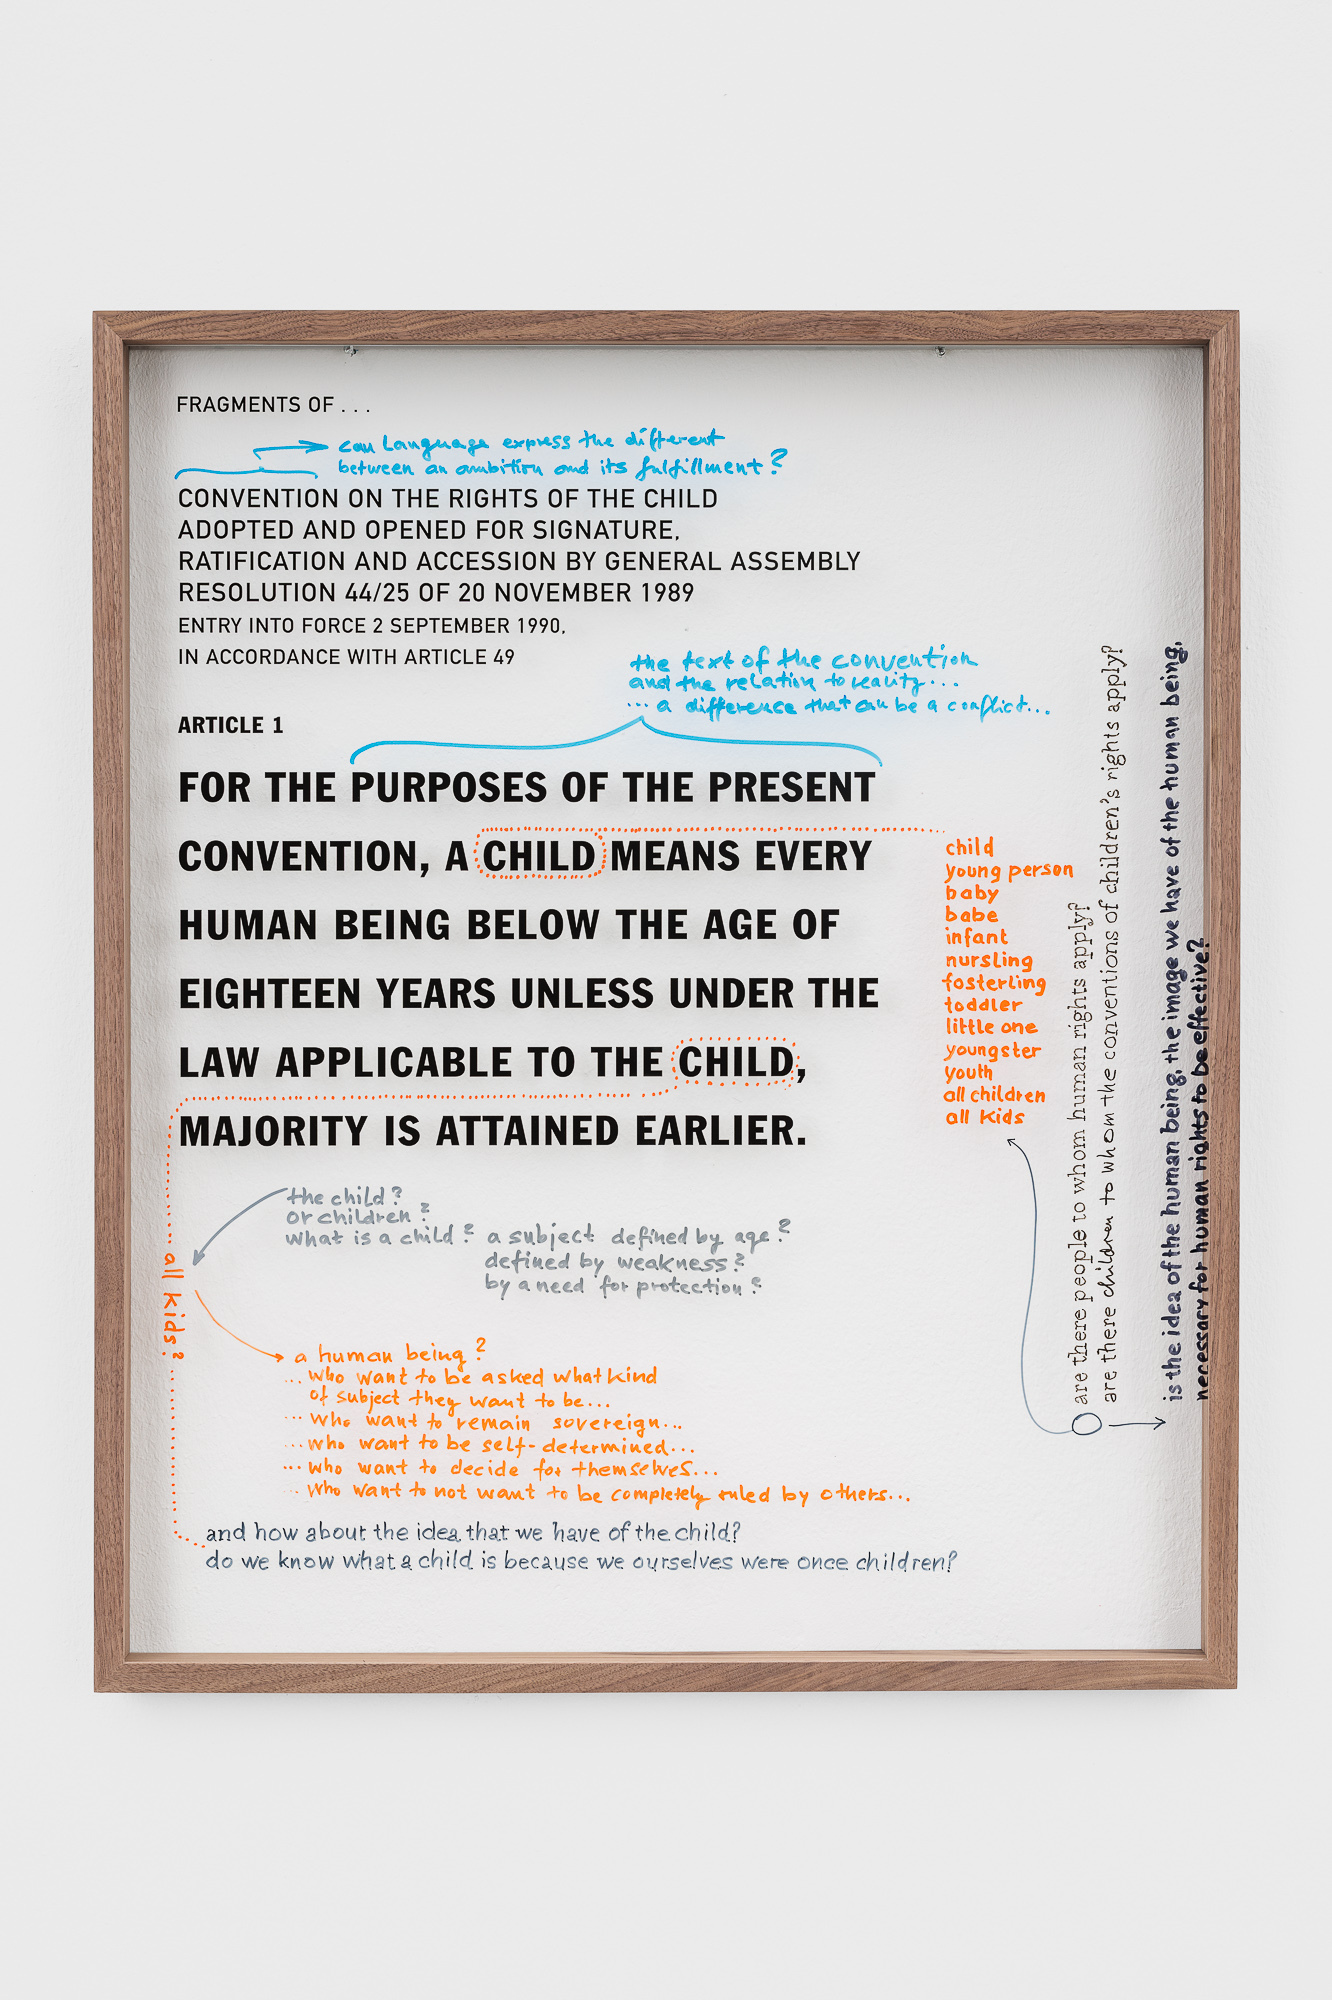 FRAGMENTS OF . . .
can language express the different
between an ambition and its fulfillment?
CONVENTION ON THE RIGHTS OF THE CHILD
ADOPTED AND OPENED FOR SIGNATURE,
RATIFICATION AND ACCESSION BY GENERAL ASSEMBLY
RESOLUTION 44/25 OF 20 NOVEMBER 1989
ENTRY INTO FORCE 2 SEPTEMBER 1990,
IN ACCORDANCE WITH ARTICLE 49
the text of the convention
and the relation to reality...
... a difference that can be a conflict...
ARTICLE 1
FOR THE PURPOSES OF THE PRESENT
CONVENTION, A CHILD MEANS EVERY
HUMAN BEING BELOW THE AGE OF
EIGHTEEN YEARS UNLESS UNDER THE
LAW APPLICABLE TO THE CHILD,
MAJORITY IS ATTAINED EARLIER.
child
young person
baby
babe
infant
nursling
fosterling
toddler
little one
youngster
youth
all children
all kids
are there people to whom human rights apply?
are there children to whom the conventions of children's rights apply?
is the idea of the human being, the image we have of the human being,
necessary for human rights to be effective?
the child?
or children?
what is a child? a subject defined by age?
defined by weakness?
by a need for protection?
all kids?
a human being?
... who want to be asked what kind
of subject they want to be...
... who want to remain sovereign...
... who want to be self-determined...
... who want to decide for themselves...
... who want to not want to be completely ruled by others...
and how about the idea that we have of the child?
do we know what a child is because we ourselves were once children?